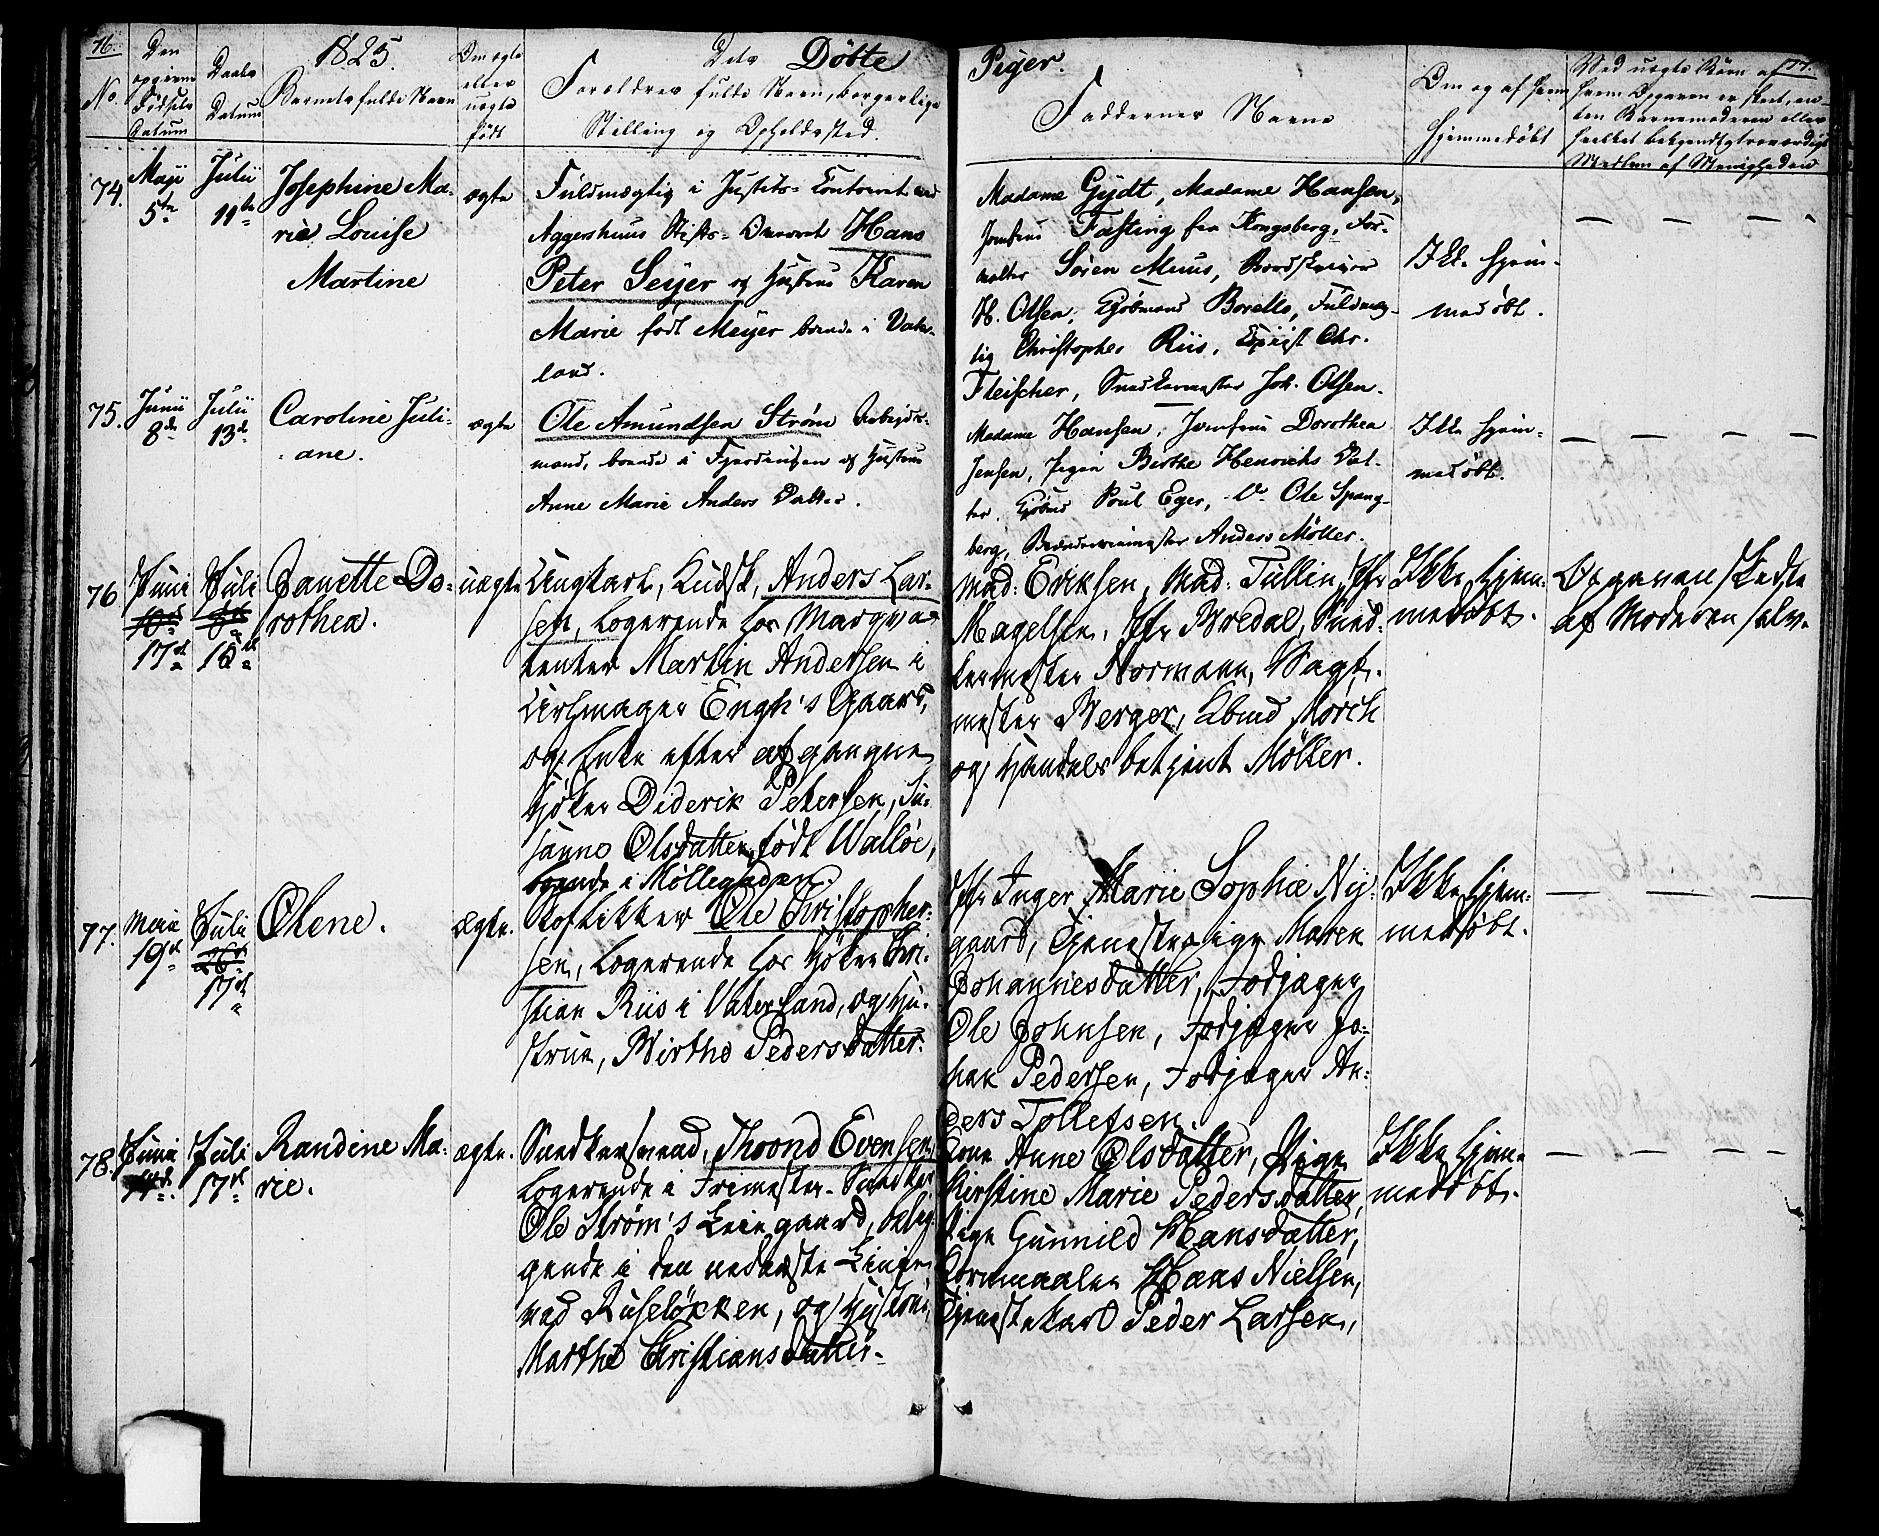 76.
1825.
Dets Döbte Piger.
77.
No.
Den opgivne Födsels Datum
Daabs Datum
Barnets fulde Navn
Om ægte eller uægte født
Forældres fulde Navn, borgerlige
Stilling og Opholdssted.
Faddernes Navne
Om og af hvem
hjemmedöbt
Ved uægte Börn af
hvem Opgaven er skeet, en-
ten Barnemoderen eller
hvilket bekjendt troværdigt
Medlem af Menigheden
74.
Maji
5te
Julii
11te
Josephine Ma-
rie Louise
Martine
ægte
Fuldmægtig i Justits-Contoret ved
Aggershuus Stifts- Hans
Peter Seyer og Hustrue Karen
Marie født Meyer boende i Vater-
land.
Madame Gydt, Madame Hansen,
Jomfrue Fasting fra Kongsberg, For-
valter Sören Muus, Bordskriver
H. Olsen, Kjöbmand Borells, Fuldmæg-
tig Christopher Riis, Chr.
Fleischer, Snedkermester Joh. Olsen.
Ikke hjem-
medöbt.
— — —
75.
Junii
8de
Julii
13de
Caroline Juli-
ane.
ægte
Ole Amundsen Ström Arbejds-
mand, boende i Fjerdingen og Hustrue
Anne Marie Anders Datter.
Madame Hansen, Jomfrue Dorothea
Jensen, Pigen Birthe Henrichs Dat-
ter, Kjöbmd Poul Eger, Do Ole Spang-
berg, Anders Möller.
Ikke hjem-
medöbt.
— — — —
76
Juni
10de
17de
Juli
8de
16de
Janette Do-
rothea.
uægte
Ungkarl, Kudsk, Anders Lar-
sen, Logerende hos Marqve-
tenter Martin Andersen i
Urhmager Engh's Gaard,
og Enke efter afgangne
Höker Diderik Petersen, Su-
sanne Olsdatter, född Walløe,
boende i Möllegaden
Mad: Eriksen, Mad: Tullin, Jfr
Magelsen, Jfr Bredal, Sned-
kermester Normann, Vagt-
mester Berger, Kbmd Morch
og Handelsbetjent Möller.
Ikke hjem-
medöbt.
Opgaven skedte
af Moderen selv.
77.
Maii
19de
Juli
26de
17de
Olene.
ægte.
Roflikker Ole Kristopher-
sen, Logerende hos Höker Kri-
stian Riis i Vaterland, og Hu-
strue, Birthe Pedersdatter.
Jfr Inger Marie Sophie Ny-
gaard, Tjenestepige Maren
Johannesdatter, Fodjæger
Ole Johnsen, Fodjæger Jo-
han Pedersen, Fodjæger An-
ders Tollefsen.
Ikke hjem-
medöbt.
— — —
78.
Junii
14de
Juli
17de
Randine Ma-
rie.
ægte.
Snedkersvend, Thoond Evensen,
Logerende i Frimester-Snedker
Ole Ström's Leiegaard, belig-
gende i den nederste Linie
ved Ruselökken, og Hustrue,
Marthe Christiansdatter.
Kone Anne Olsdatter, Pige
Kirstine Marie Pedersdatter,
Pige Gunnild Hansdatter,
Cornmaaler Hans Nielsen,
Tjenestekarl Peder Larsen,
Ikke hjem-
medöbt.
— — — —